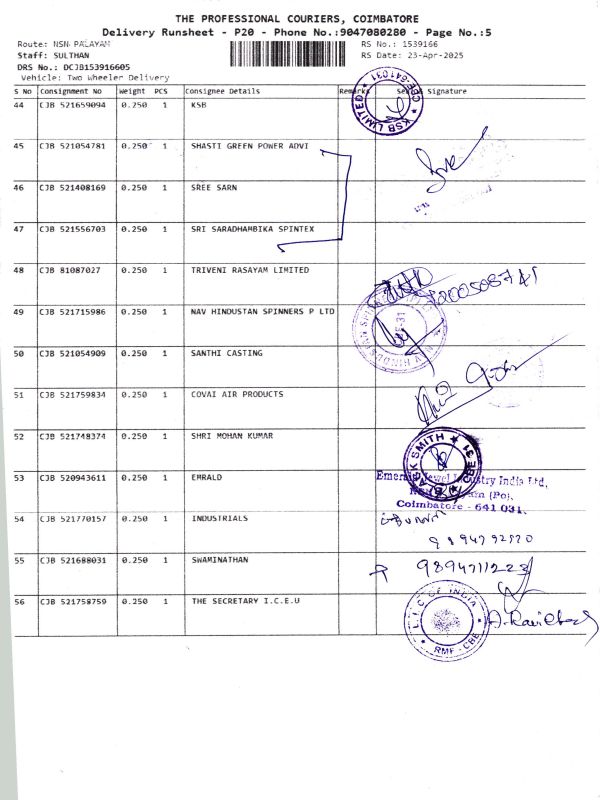 THE PROFESSIONAL COURIERS, COIMBATORE
Delivery Runsheet - P20 - Phone No.:9047080280 - Page No.:5
Route: NSN PALAYAM
RS No.: 1539166
Staff: SULTHAN
RS Date: 23-Apr-2025
DRS No.: DCJB153916605
Vehicle: Two Wheeler Delivery
S No Consignment No Weight PCS Consignee Details Remarks Signature
44 CJB 521659094 0.250 1 KSB
KSB LIMITED ★ CBE-641031
45 CJB 521054781 0.250 1 SHASTI GREEN POWER ADVI
46 CJB 521408169 0.250 1 SREE SARN
47 CJB 521556703 0.250 1 SRI SARADHAMBIKA SPINTEX
48 CJB 81087027 0.250 1 TRIVENI RASAYAM LIMITED
49 CJB 521715986 0.250 1 NAV HINDUSTAN SPINNERS P LTD
50 CJB 521054909 0.250 1 SANTHI CASTING
51 CJB 521759834 0.250 1 COVAI AIR PRODUCTS
52 CJB 521748374 0.250 1 SHRI MOHAN KUMAR
BLACK SMITH ★ CBE 31
53 CJB 520943611 0.250 1 EMRALD
Jewel Industry India Ltd,
(Po),
Coimbatore - 641 031.
54 CJB 521770157 0.250 1 INDUSTRIALS
55 CJB 521688031 0.250 1 SWAMINATHAN
9894711223
56 CJB 521758759 0.250 1 THE SECRETARY I.C.E.U
L.I.C OF INDIA
RMF - CBE